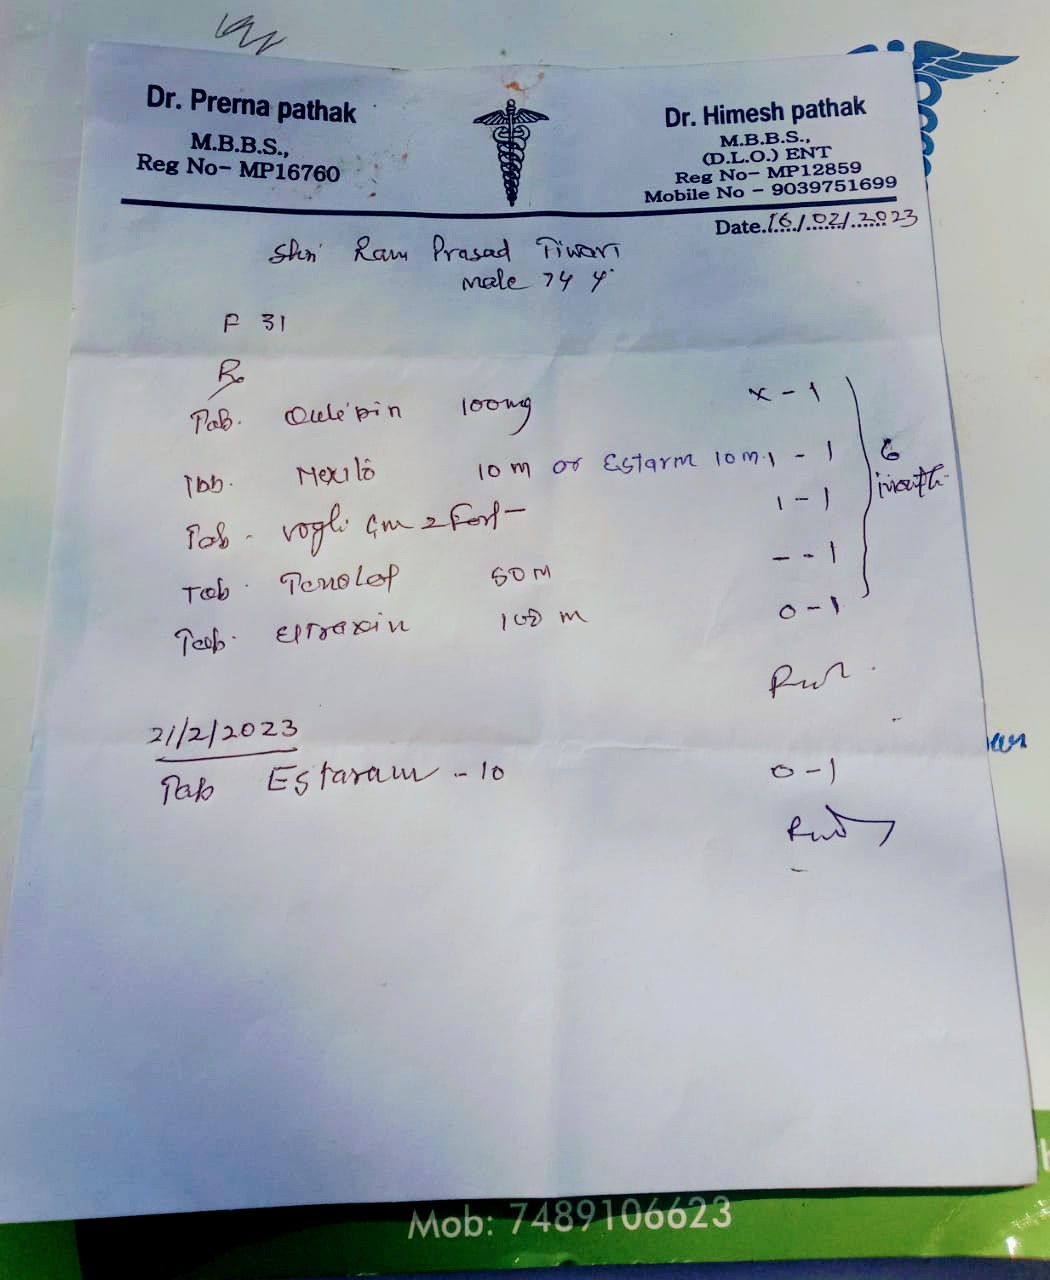 Dr. Prerna pathak
M.B.B.S.,
Reg No- MP16760
Dr. Himesh pathak
M.B.B.S.,
(D.L.O.) ENT
Reg No- MP12859
Mobile No - 9039751699
Date.16/02/2023
Shri Ram Prasad Tiwari
male 74 y.
F 31
Rx
Tab. 100mg x-1
Tab. Nexito 10 m or Estarm 10 m 1 - 1
Tab. vogli Gm 2 Fort 1-1
Tab. 50 m - - 1
Tab. 100 m 0-1
6
month
21/2/2023
Tab Estaram - 10 0-1
Mob: 7489106623